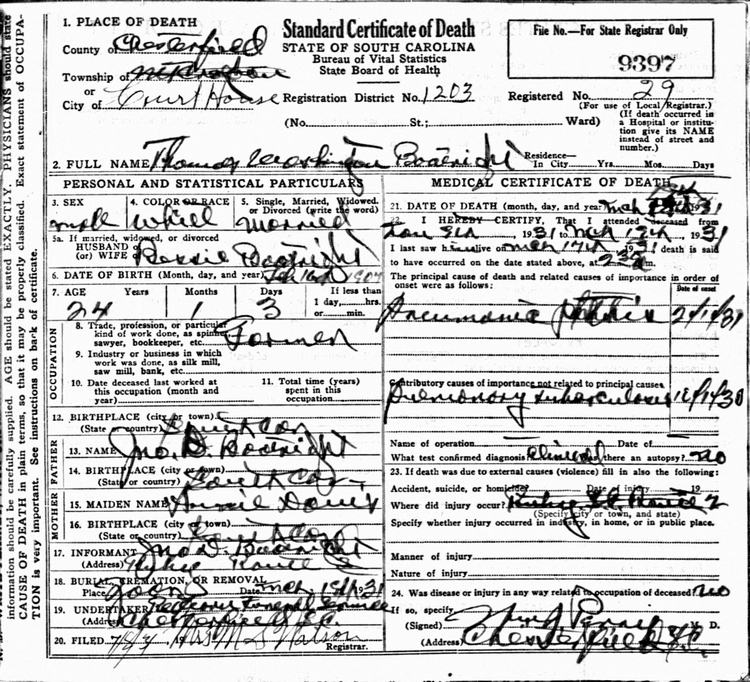 Standard Certificate of Death
STATE OF SOUTH CAROLINA
Bureau of Vital Statistics
State Board of Health
File No.—For State Registrar Only
9397
1. PLACE OF DEATH
County of Chesterfield
Township of
or
City of Court House
Registration District No. 1203
Registered No. 29
(For use of Local Registrar.)
(No. St.; Ward)
(If death occurred in
a Hospital or institu-
tion give its NAME
instead of street and
number.)
2. FULL NAME Thomas Washington Boatright
Residence—
In City Yrs. Mos. Days
PERSONAL AND STATISTICAL PARTICULARS
3. SEX
male
4. COLOR OR RACE
White
5. Single, Married, Widowed,
or Divorced (write the word)
Married
5a. If married, widowed, or divorced
HUSBAND of
(or) WIFE of Bessie Boatright
6. DATE OF BIRTH (Month, day, and year) Feb 1907
7. AGE Years Months Days
24 1 3
If less than
1 day, hrs.
or min.
OCCUPATION
8. Trade, profession, or particular
kind of work done, as spinner,
sawyer, bookkeeper, etc. Farmer
9. Industry or business in which
work was done, as silk mill,
saw mill, bank, etc.
10. Date deceased last worked at
this occupation (month and
year)
11. Total time (years)
spent in this
occupation
12. BIRTHPLACE (city or town)
(State or country) South Car
FATHER
13. NAME Jno. D. Boatright
14. BIRTHPLACE (city or town)
(State or country) South Car
MOTHER
15. MAIDEN NAME
16. BIRTHPLACE (city or town)
(State or country) South Car
17. INFORMANT Jno D. Boatright
(Address) Ruby Route 2
18. BURIAL, CREMATION, OR REMOVAL
Place Date Mch 1931
19. UNDERTAKER Funeral Service
(Address) Chesterfield S.C.
20. FILED 19 Mrs M S Watson
Registrar.
MEDICAL CERTIFICATE OF DEATH
21. DATE OF DEATH (month, day, and year) Mch 1931
22. I HEREBY CERTIFY, That I attended deceased from
1931 to Mch 1931
I last saw him alive on Mch 17th 1931 death is said
to have occurred on the date stated above, at
The principal cause of death and related causes of importance in order of
onset were as follows:
Date of onset
Pneumonia Phthisis 2/1/31
Contributory causes of importance not related to principal cause
Pulmonary tuberculosis
Name of operation Date of
What test confirmed diagnosis Clinical Was there an autopsy? no
23. If death was due to external causes (violence) fill in also the following:
Accident, suicide, or homicide? Date of injury 19
Where did injury occur? Ruby S.C. Route 2
(Specify city or town, and state)
Specify whether injury occurred in industry, in home, or in public place.
Manner of injury
Nature of injury
24. Was disease or injury in any way related to occupation of deceased? no
If so, specify
(Signed) Perry M. D.
(Address) Chesterfield S.C.
information should be carefully supplied. AGE should be stated EXACTLY. PHYSICIANS should state
CAUSE OF DEATH in plain terms, so that it may be properly classified. Exact statement of OCCUPA-
TION is very important. See instructions on back of certificate.